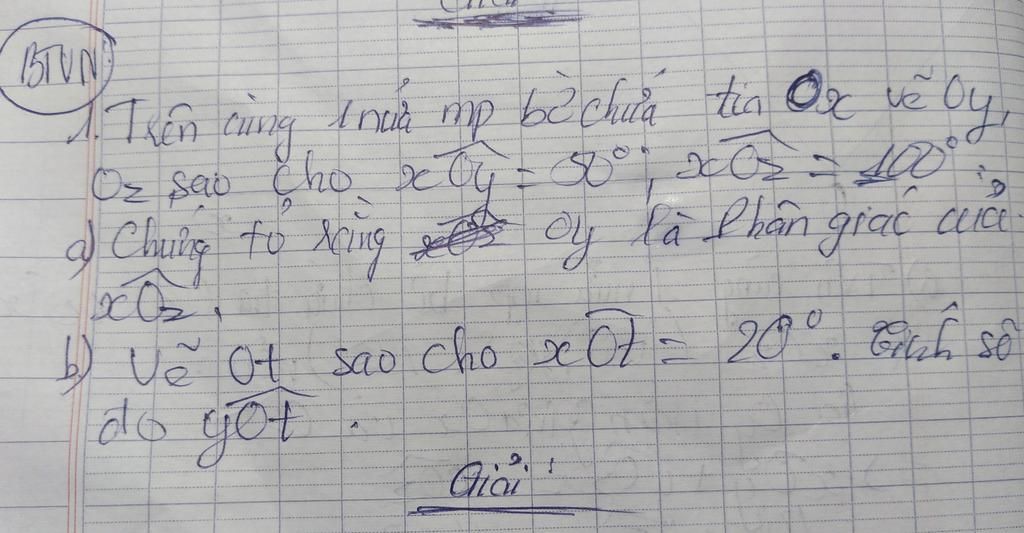 BTVN
1. Trên cùng 1 nửa mp bờ chứa tia Ox vẽ Oy,
Oz sao cho xOy = 50°; xOz = 100°.
a) Chứng tỏ rằng Oy là Phân giác của
xOz.
b) Vẽ Ot sao cho xOt = 20°. Tính số
đo yOt.
Giải: